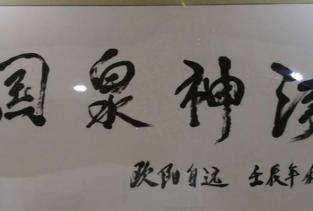 国泉神
欧阳自远 壬辰年